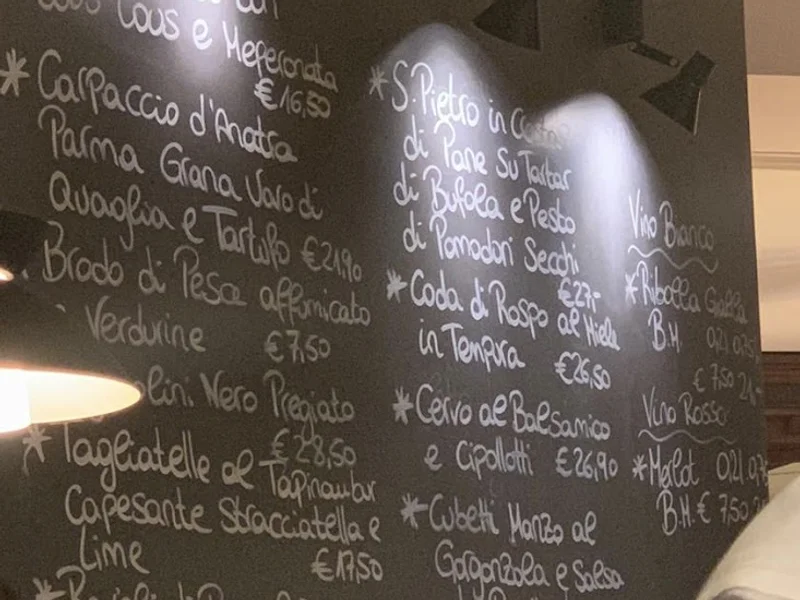 Cous e Peperonata
€16,50
* Carpaccio d'Anatra
Parma Grana Uovo di
Quaglia e Tartufo €21,90
Brodo di Pesce affumicato
Verdurine €7,50
Nero Pregiato
€28,50
* Tagliatelle al Topinambur
Capesante Stracciatella e
Lime €17,50
* S. Pietro in Crosta
di Pane Su Tartar
di Bufala e Pesto
di Pomodori Secchi
€27,-
* Coda di Rospo al Miele
in Tempura €26,50
* Cervo al Balsamico
e Cipollotti €26,90
* Cubetti Manzo al
Gorgonzola e Salsa
Vino Bianco
* Ribolla Gialla
B.M. 0,2l
€ 7,50
Vino Rosso
* Merlot 0,2l
B.M. € 7,50